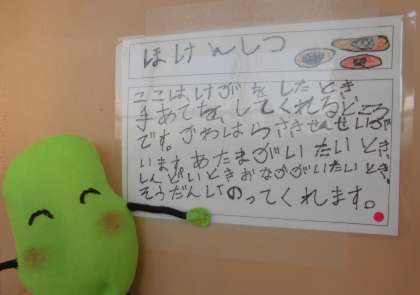 ほけんしつ
ここは、けがをしたとき
手あてを、してくれるどころ
です。かわはらさきせんせいが
います。あたまがいたいとき、
しんどいときおなかがいたいとき、
そうだんにのってくれます。